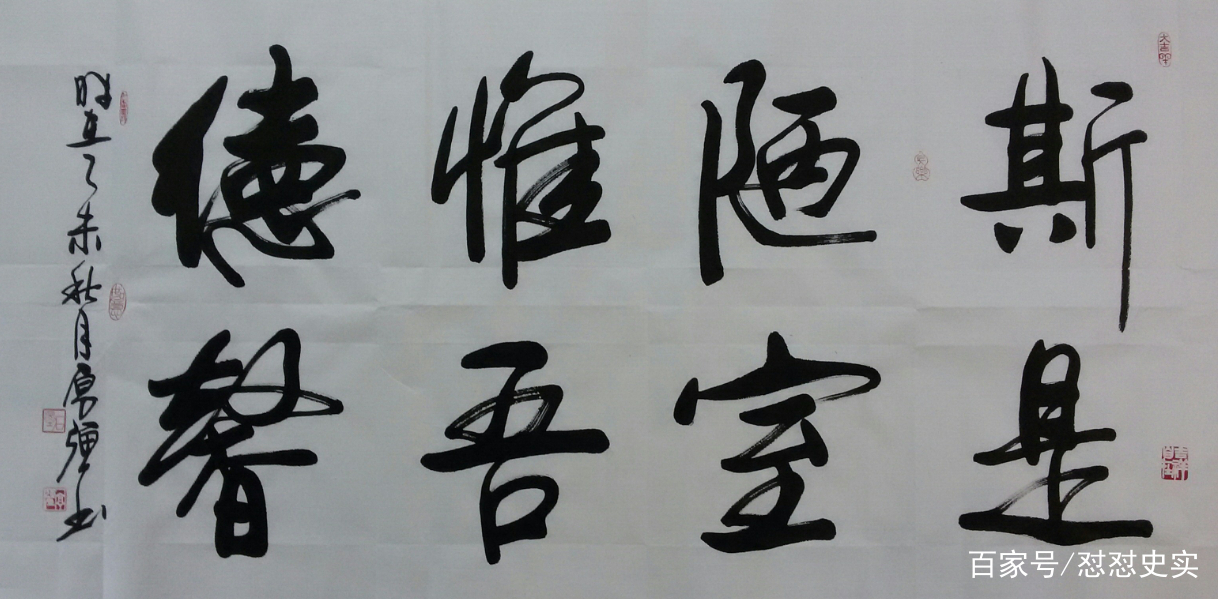 斯是
陋室
惟吾
德馨
時在乙未秋月书
百家号/怼怼史实